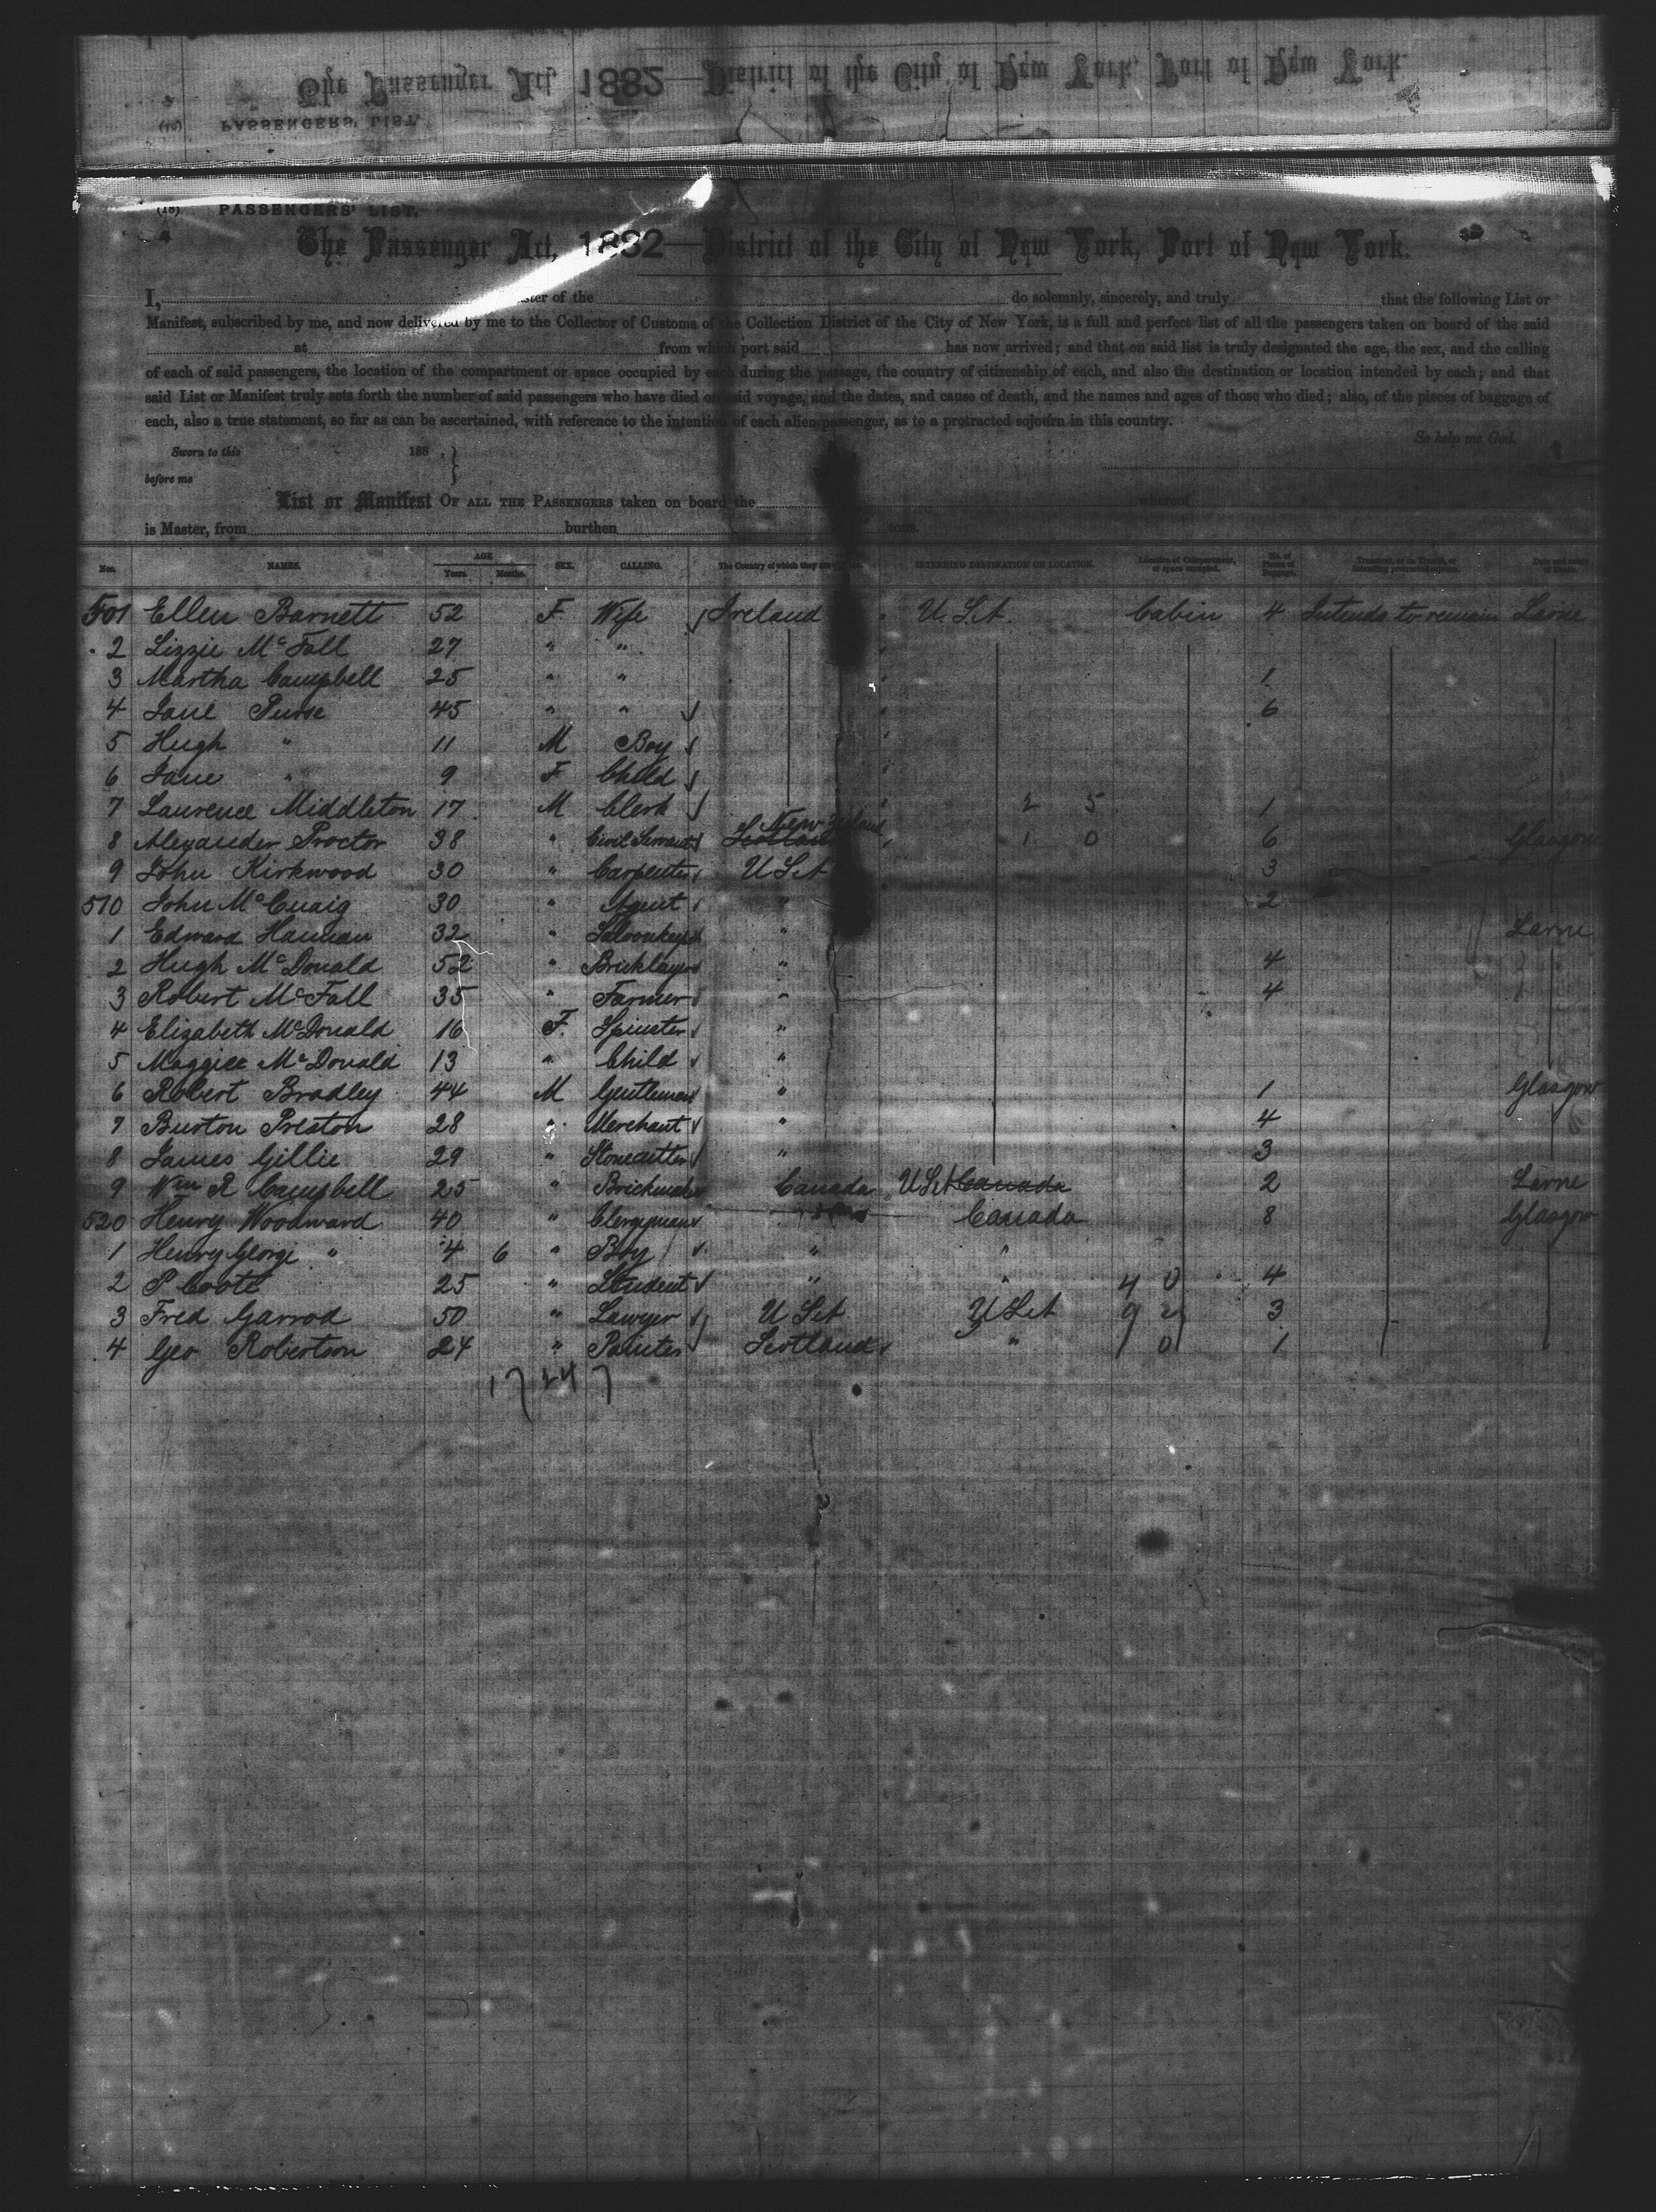 The Passenger Act, 1882—District of the City of New York, Port of New York.
(18) PASSENGERS' LIST.
(18) PASSENGERS' LIST.
The Passenger Act, 1882—District of the City of New York, Port of New York.
I, ster of the do solemnly, sincerely, and truly that the following List or
Manifest, subscribed by me, and now delivered by me to the Collector of Customs of the Collection District of the City of New York, is a full and perfect list of all the passengers taken on board of the said
at from which port said has now arrived; and that on said list is truly designated the age, the sex, and the calling
of each of said passengers, the location of the compartment or space occupied by each during the passage, the country of citizenship of each, and also the destination or location intended by each; and that
said List or Manifest truly sets forth the number of said passengers who have died on said voyage, and the dates, and cause of death, and the names and ages of those who died; also, of the pieces of baggage of
each, also a true statement, so far as can be ascertained, with reference to the intention of each alien passenger, as to a protracted sojourn in this country.
So help me God.
Sworn to this 188 , }
before me
List or Manifest OF ALL THE PASSENGERS taken on board the whereof
is Master, from burthen tons.
Nos. NAMES. AGE Years. Months. SEX. CALLING. The Country of which they are INTENDING DESTINATION OR LOCATION. Location of Compartment, or space occupied. No. of Pieces of Baggage. Transient, or in Transit, or intending protracted sojourn. Date and cause of Death.
501 Ellen Barnett 52 F Wife Ireland U.S.A. Cabin 4 Intends to remain Larne
2 Lizzie McFall 27 " "
3 Martha Campbell 25 " " 1
4 Jane Purse 45 " " 6
5 Hugh " 11 M Boy
6 Jane " 9 F Child
7 Laurence Middleton 17 M Clerk 2 5 1
8 Alexander Proctor 38 " Civil Servant Scotland 1 0 6 Glasgow
9 John Kirkwood 30 " Carpenter USA 3
510 John McCuaig 30 " Agent " 2
1 Edward Hannan 32 " Saloonkeeper " Larne
2 Hugh McDonald 52 " Bricklayer " 4
3 Robert McFall 35 " Farmer " 4
4 Elizabeth McDonald 16 F. Spinster "
5 Maggie McDonald 13 " Child "
6 Robert Bradley 44 M Gentleman " 1 Glasgow
7 Burton Preston 28 " Merchant " 4
8 James Gillie 29 " Stonecutter " 3
9 Wm R Campbell 25 " Brickmaker Canada USA Canada 2 Larne
520 Henry Woodward 40 " Clergyman Canada 8 Glasgow
1 Henry George " 4 6 " Boy " "
2 P Coote 25 " Student " " 4 0 4
3 Fred Garrod 50 " Lawyer USA USA 9 3
4 Geo Robertson 24 " Painter Scotland " 0 1
17 24 7